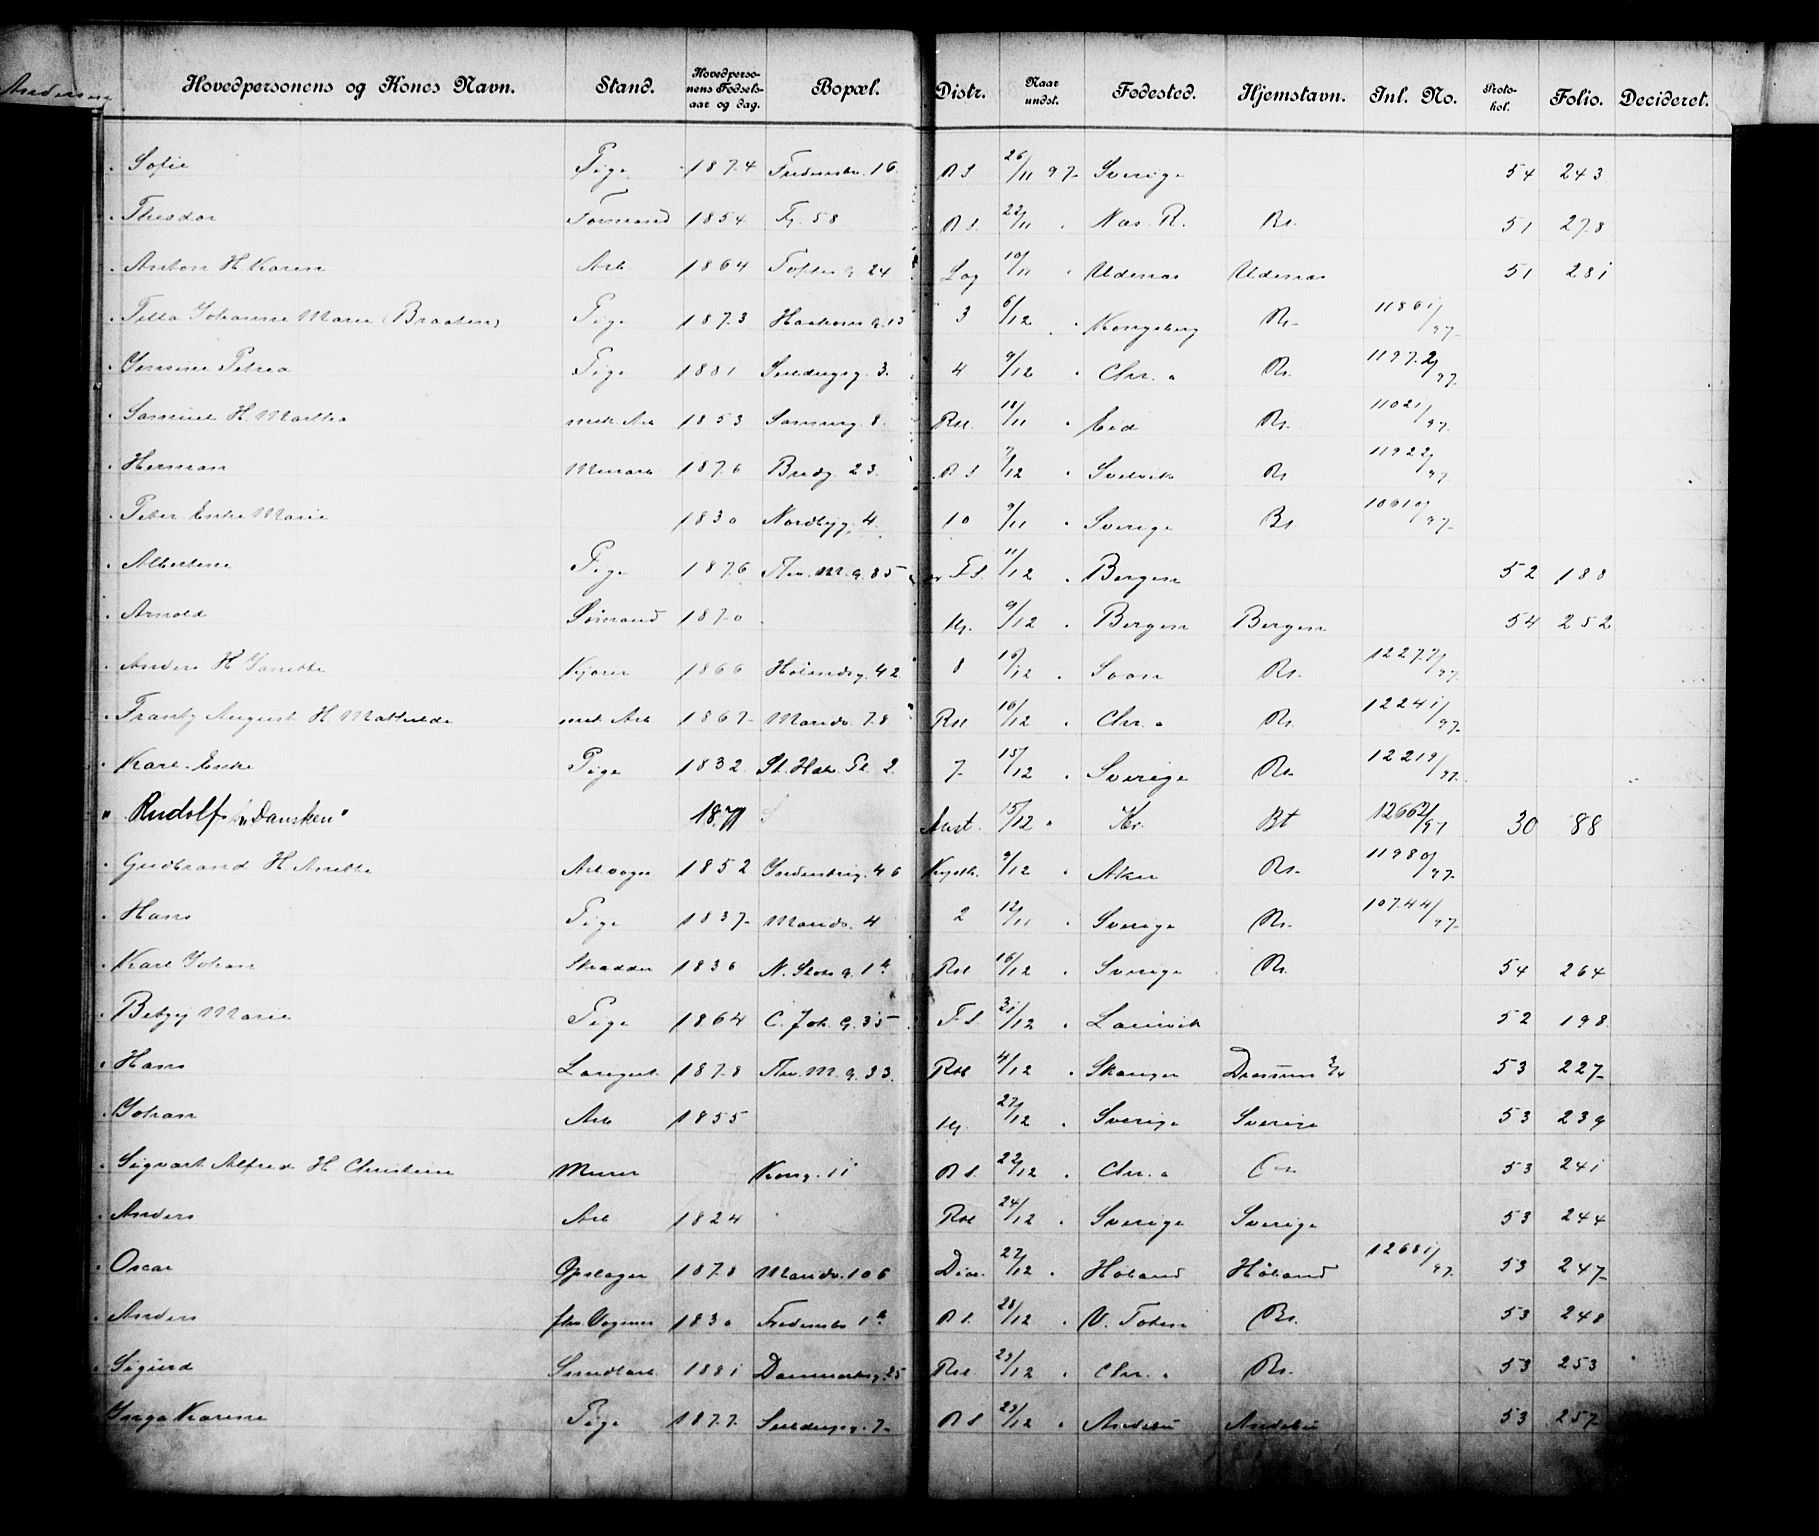 Andersen
Hovedpersonens og Kones Navn. Stand. Hovedpersonens Fødselsaar og dag. Bopæl. Distr. Naar undst. Fødested. Hjemstavn. Inl. No. Protokol. Folio. Decideret.
" Sofie Pige 1874 Fredensbv. 16 R S 26/11 97 Sverige 54 243
" Theodor Formand 1854 Tg. 58 R S 22/11 " Næs. R. Rs. 51 278
" Anton H Karen Arb 1864 Tofteg 24 Log 10/11 " Udenæs Udenæs 51 281
" Tilla Johanne Marie (Braaten) Pige 1873 Haakons g. 13 3 6/12 " Kongsberg Rs. 11861/97
" Jensine Petrea Pige 1881 Sveldrupsg. 3. 4 9/12 " Chr. a Rs. 11972/97
" Samuel H. Martha mek Arb 1853 Sannerg. 8. Rst. 18/11 " Eid Rs. 11021/97
" Herman Murarb 1876 Bredg 23. R S 7/12 " Svelvik Rs 11922/97
" Peter Enke Marie 1830 Nordbyg. 4. 10 9/11 " Sverige Rs. 10610/97
" Albertine Pige 1876 Thv. M. g. 85 F S. 11/12 " Bergen 52 188
" Arnold Sømand 1870 Kg. 9/12 " Bergen Bergen 54 252
" Anders H Janette Kjører 1866 Hølandsg. 42 8 10/12 " Soon Rs. 12277/97
" Frantz August H Mathilde mek Arb 1867 Maridv. 78 Rst 16/12 " Chr. a Rs. 12241/97
" Karl. Enke Pige 1832 St. Hah. Pl. 2. 7 15/12 " Sverige Rs. 12219/97
" Rudolf "Dansken" 1871 Anst. 15/12 " Kr. Bt 12662/97 30 88
" Gudbrand H Anette Arb vogn 1852 Industrig. 46 Krystk. 9/12 " Aker Rs. 11980/97
" Hans Pige 1837 Maridv. 4 2 12/11 " Sverige Rs. 10744/97
" Karl Johan Skrædder 1836 N. Slots g. 1a Rst 16/12 " Sverige Rs. 54 264
" Betzy Marie Pige 1864 C. Joh. G. 35 F S. 31/12 " Laurvik 52 198
" Hans 1878 Thv. M. g. 33. Rst 4/12 " Skanger 3/4 53 227
" Johan Arb 1855 Kg. 27/12 " Sverige Sverige 53 239
" Sigvart Alfred H. Christine Murer Kong. 11 R S. 22/12 " Chr. a 53 241
" Anders Arb 1824 Rst 24/12 " Sverige Sverige 53 244
" Oscar Opslager 1878 Maridv. 106 27/12 " Høland Høland 12681/97 53 247
" Anders fhv Vognm 1830 Fredensbv 1a R S. 28/12 " V. Toten Rs. 53 248
" Sigurd Smedlærl. 1881 Danmarksg. 25 Rst 23/12 " Chr. a Rs. 53 253
Inga Karine Pige 1877 Sveldrupsg. 7 R S 23/12 " Andebu Andebu 53 257